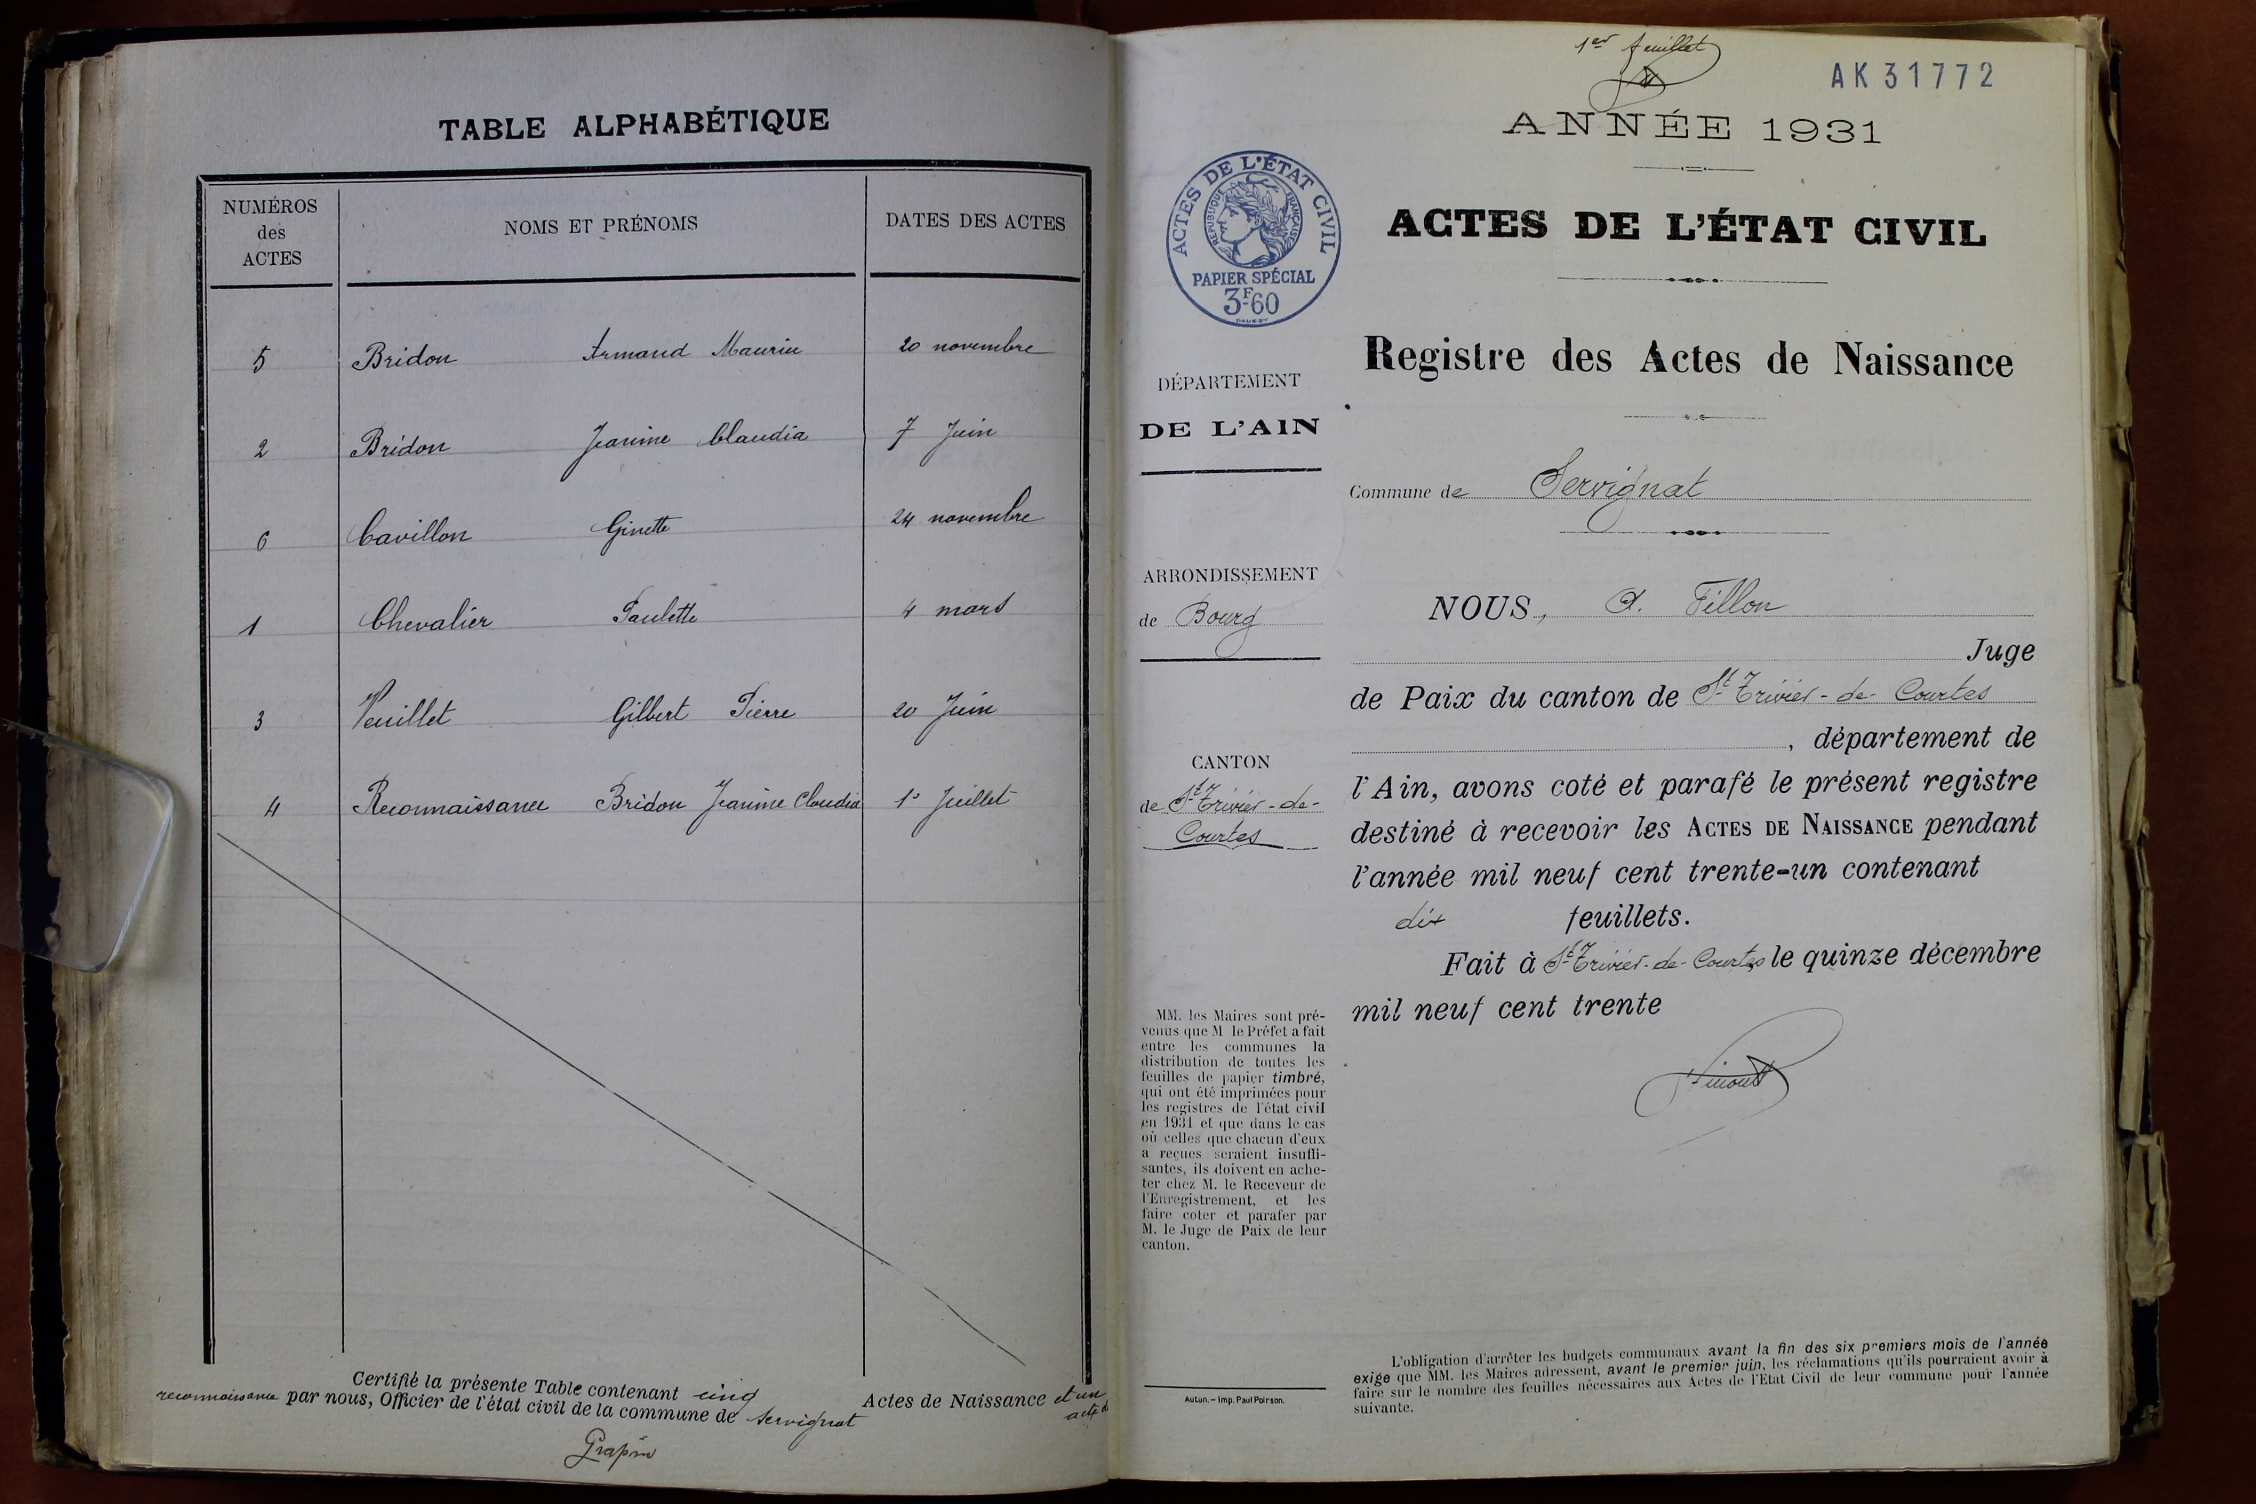 TABLE ALPHABÉTIQUE
NUMÉROS
des
ACTES
NOMS ET PRÉNOMS
DATES DES ACTES
5 Bridon Armand Maurice 20 novembre
2 Bridon Jeanine Claudia 7 Juin
6 Cavillon Ginette 24 novembre
1 Chevalier Paulette 4 mars
3 Veuillet Gilbert Pierre 20 Juin
4 Reconnaissance Bridon Jeanine Claudia 1er Juillet
Certifié la présente Table contenant cinq Actes de Naissance et un
acte de
reconnaissance par nous, Officier de l'état civil de la commune de Servignat
Grapin
1er feuillet
AK 31772
ANNÉE 1931
ACTES DE L'ÉTAT CIVIL
RÉPUBLIQUE FRANÇAISE
PAPIER SPÉCIAL
3F60
ACTES DE L'ÉTAT CIVIL
Registre des Actes de Naissance
DÉPARTEMENT
DE L'AIN
Commune de Servignat
ARRONDISSEMENT
de Bourg
CANTON
de St Trivier-de-
Courtes
NOUS, A. Fillon
Juge
de Paix du canton de St Trivier-de-Courtes
, département de
l'Ain, avons coté et parafé le présent registre
destiné à recevoir les ACTES DE NAISSANCE pendant
l'année mil neuf cent trente-un contenant
dix feuillets.
Fait à St Trivier-de-Courtes le quinze décembre
mil neuf cent trente
MM. les Maires sont pré-
venus que M le Préfet a fait
entre les communes la
distribution de toutes les
feuilles de papier timbré,
qui ont été imprimées pour
les registres de l'état civil
en 1931 et que dans le cas
où celles que chacun d'eux
a reçues seraient insuffi-
santes, ils doivent en ache-
ter chez M. le Receveur de
l'Enregistrement, et les
faire coter et parafer par
M. le Juge de Paix de leur
canton.
Autun. – Imp. Paul Poirson.
L'obligation d'arrêter les budgets communaux avant la fin des six premiers mois de l'année
exige que MM. les Maires adressent, avant le premier juin, les réclamations qu'ils pourraient avoir à
faire sur le nombre des feuilles nécessaires aux Actes de l'Etat Civil de leur commune pour l'année
suivante.